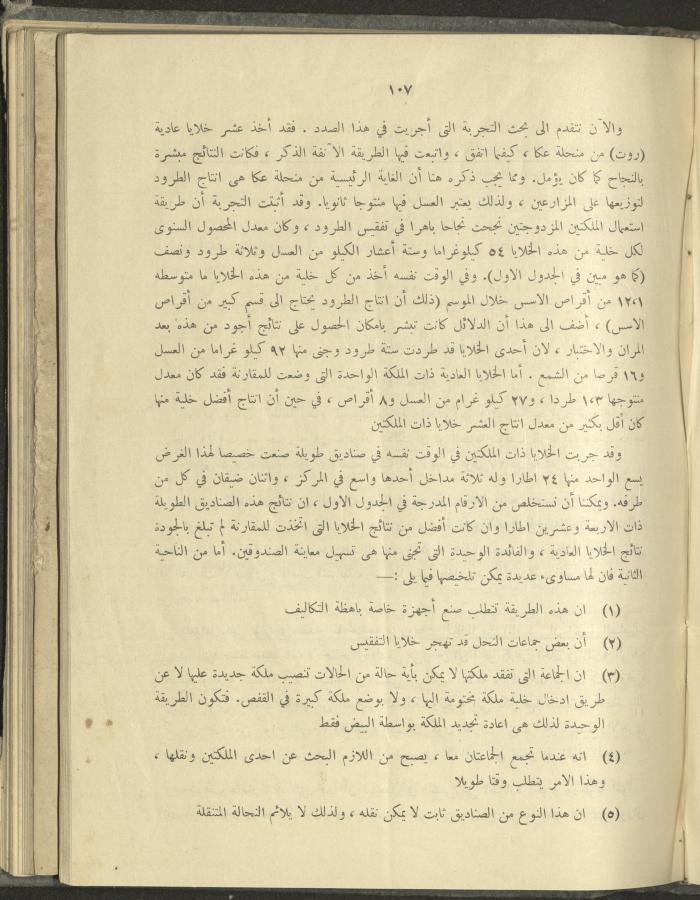 ١٠٧
والآن نتقدم الى بحث التجربة التى أجريت في هذا الصدد . فقد أخذ عشر خلايا عادية
(روت) من منحلة عكا ، كيفما اتفق ، واتبعت فيها الطريقة الآنفة الذكر ، فكانت النتائج مبشرة
بالنجاح كما كان يؤمل. ومما يجب ذكره هنا أن الغاية الرئيسية من منحلة عكا هى انتاج الطرود
لتوزيعها على المزارعين ، ولذلك يعتبر العسل فيها منتوجا ثانويا. وقد أثبتت التجربة أن طريقة
استعمال الملكتين المزدوجتين نجحت نجاحا باهرا في تفقيس الطرود ، وكان معدل المحصول السنوى
لكل خلية من هذه الخلايا ٥٤ كيلوغراما وستة أعشار الكيلو من العسل وثلاثة طرود ونصف
(كما هو مبين في الجدول الاول). وفي الوقت نفسه أخذ من كل خلية من هذه الخلايا ما متوسطه
١٢،١ من أقراص الاسس خلال الموسم (ذلك أن انتاج الطرود يحتاج الى قسم كبير من أقراص
الاسس) ، أضف الى هذا أن الدلائل كانت تبشر بامكان الحصول على نتائج أجود من هذه بعد
المران والاختبار ، لان أحدى الخلايا قد طردت ستة طرود وجنى منها ٩٢ كيلو غراما من العسل
و١٦ قرصا من الشمع . أما الخلايا العادية ذات الملكة الواحدة التى وضعت للمقارنة فقد كان معدل
منتوجها ١،٣ طردا ، و٢٧ كيلو غرام من العسل و٨ أقراص ، في حين أن انتاج أفضل خلية منها
كان أقل بكثير من معدل انتاج العشر خلايا ذات الملكتين
وقد جربت الخلايا ذات الملكتين في الوقت نفسه في صناديق طويلة صنعت خصيصا لهذا الغرض
يسع الواحد منها ٢٤ اطارا وله ثلاثة مداخل أحدها واسع في المركز ، واثنان ضيقان في كل من
طرفه. ويمكننا أن نستخلص من الارقام المدرجة في الجدول الاول ، ان نتائج هذه الصناديق الطويلة
ذات الاربعة وعشرين اطارا وان كانت أفضل من نتائج الخلايا التى اتخذت للمقارنة لم تبلغ بالجودة
نتائج الخلايا العادية ، والفائدة الوحيدة التى تجنى منها هى تسهيل معاينة الصندوقين. أما من الناحية
الثانية فان لها مساوىء عديدة يمكن تلخيصها فيما يلى :—
(١) ان هذه الطريقة تتطلب صنع أجهزة خاصة باهظة التكاليف
(٢) أن بعض جماعات النحل قد تهجر خلايا التفقيس
(٣) ان الجماعة التى تفقد ملكتها لا يمكن بأية حالة من الحالات تنصيب ملكة جديدة عليها لا عن
طريق ادخال خلية ملكة مختومة اليها ، ولا بوضع ملكة كبيرة في القفص. فتكون الطريقة
الوحيدة لذلك هى اعادة تجديد الملكة بواسطة البيض فقط
(٤) انه عندما تجمع الجماعتان معا ، يصبح من اللازم البحث عن احدى الملكتين ونقلها ،
وهذا الامر يتطلب وقتا طويلا
(٥) ان هذا النوع من الصناديق ثابت لا يمكن نقله ، ولذلك لا يلائم النحالة المتنقلة